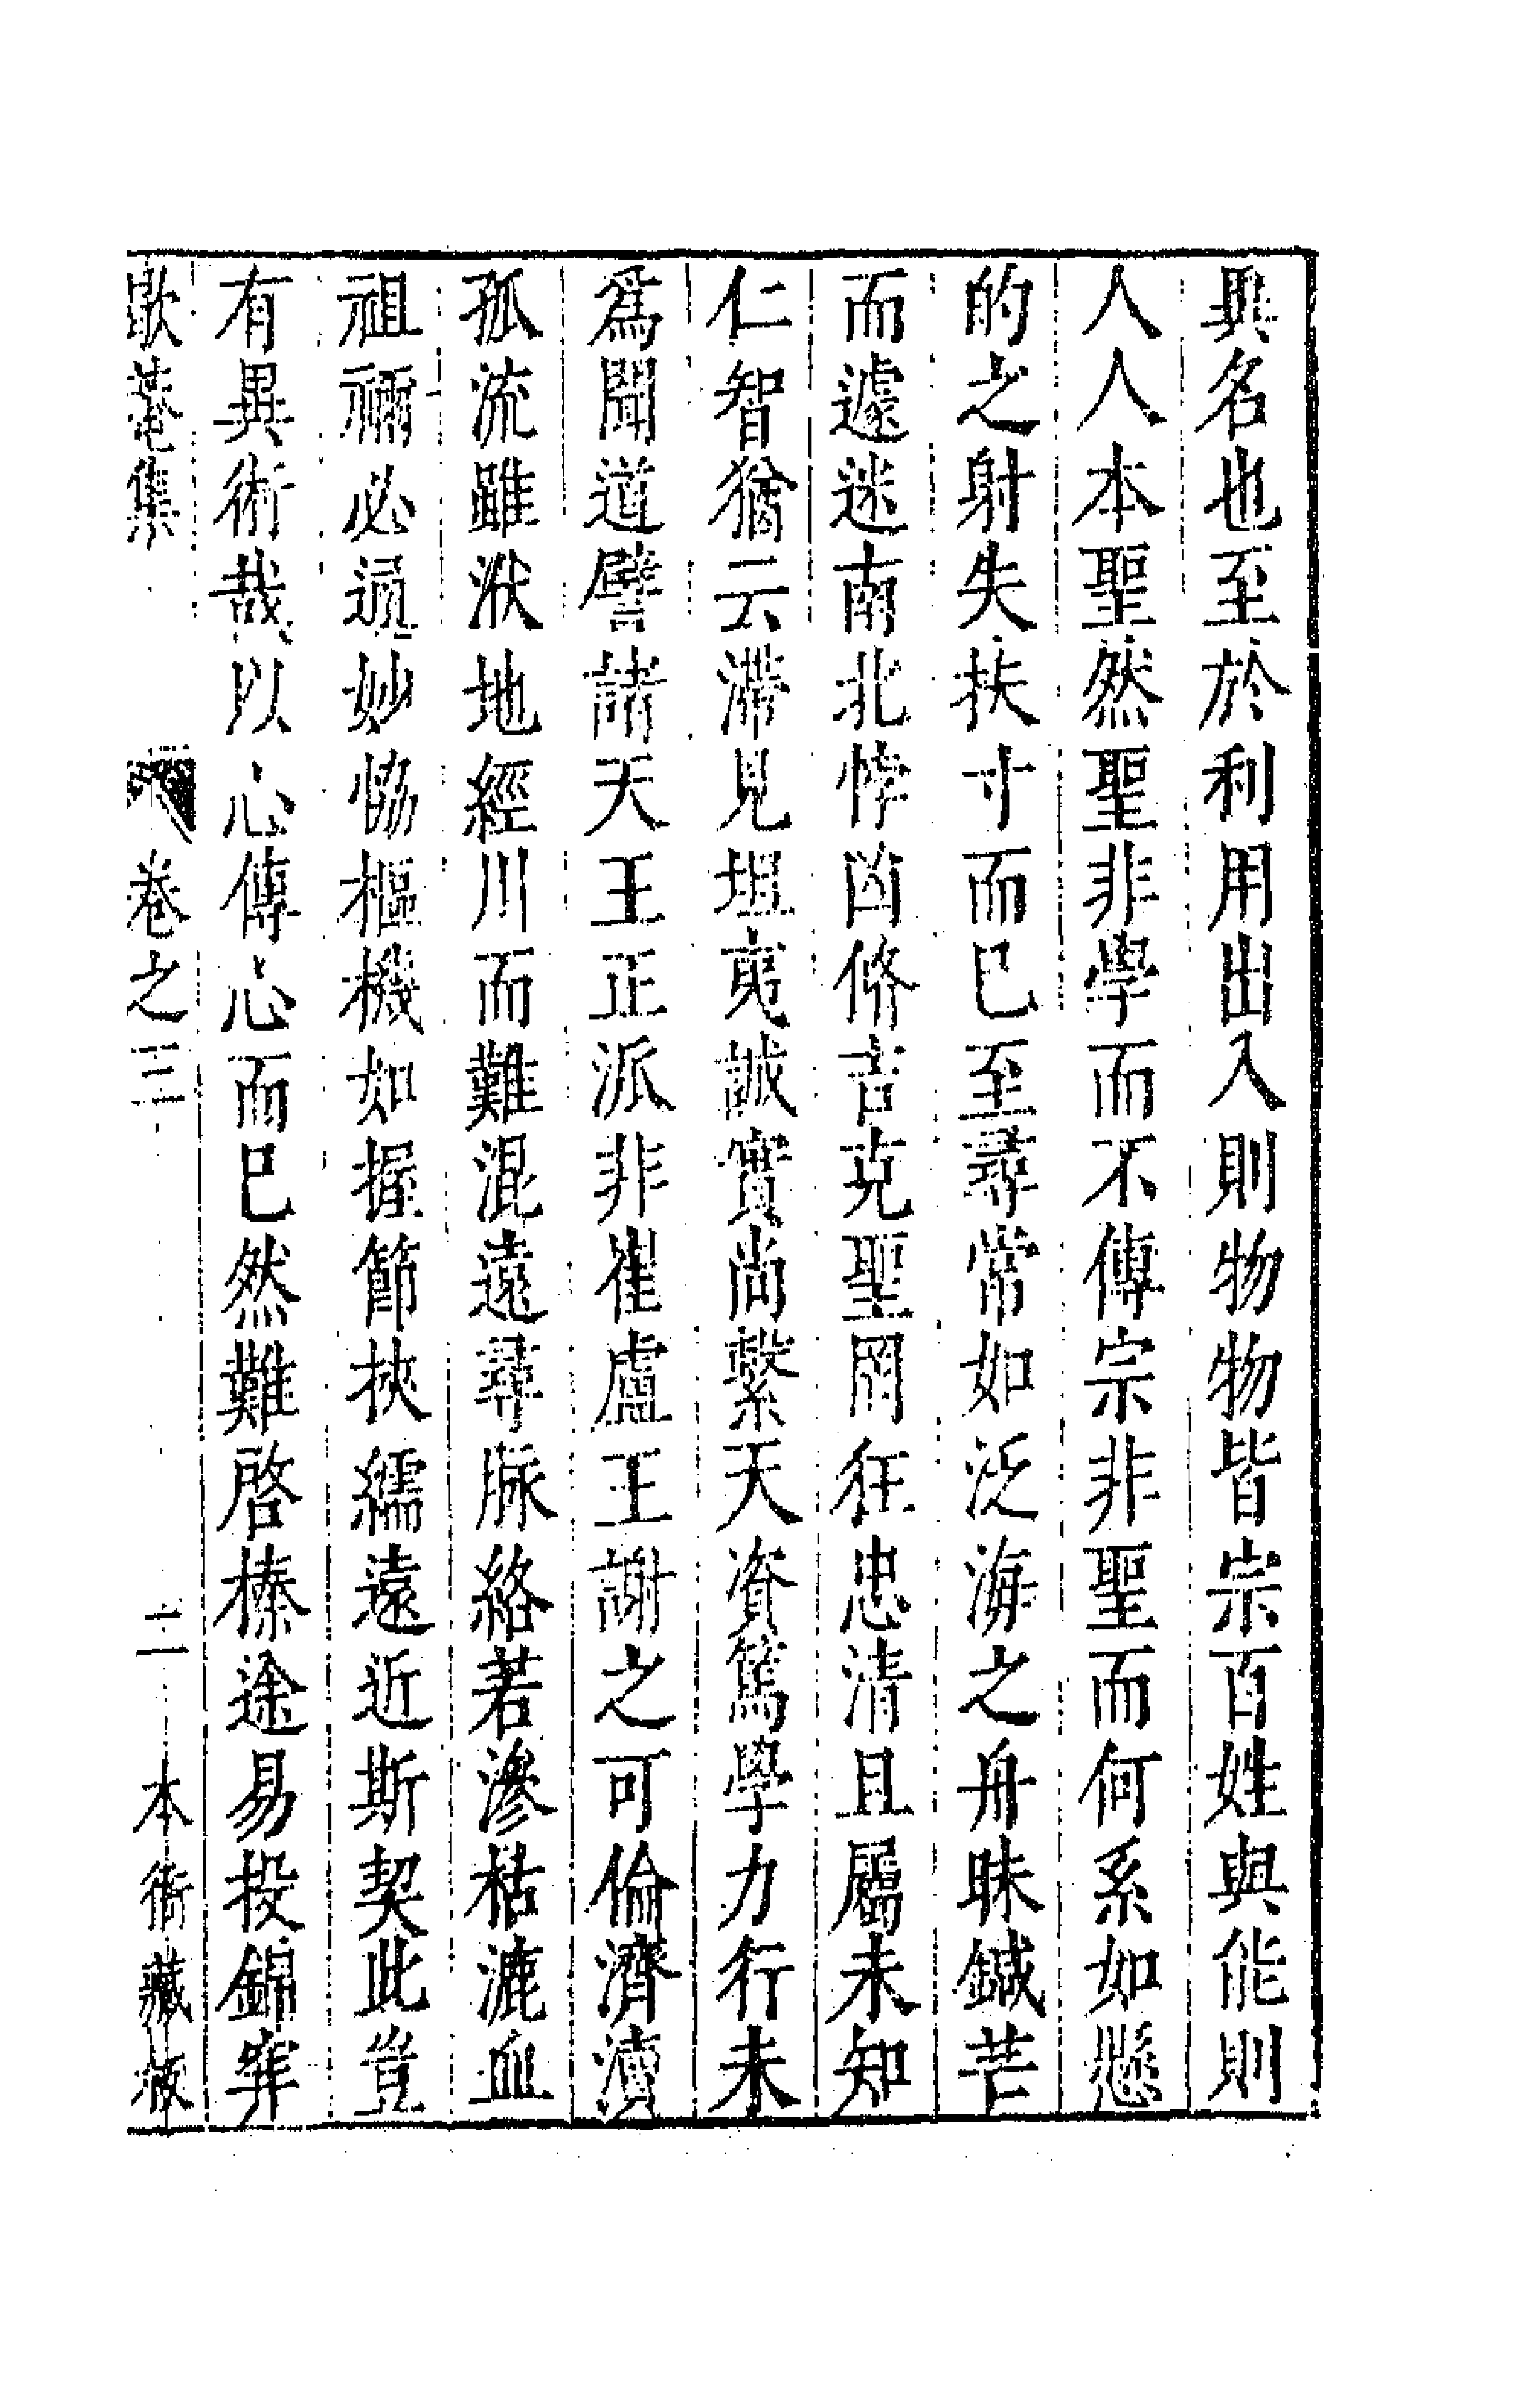 異名也至於利用出入則物物皆宗百姓與能則
人人本聖然聖非學而不傳宗非聖而何系如懸
的之射失扶寸而已至尋常如泛海之舟昧鍼芒
而遽迷南北悖凶脩吉克聖罔狂忠清且屬未知
仁智猶云滯見坦夷誠實尚繫天資篤學力行未
爲聞道譬諸天王正派非崔盧王謝之可倫濟瀆
孤流雖洑地經川而難混遠尋脉絡若滲枯漉血
祖禰必通妙恊樞機如握節挾繻遠近斯契此豈
有異術哉以心傳心而已然難啓榛途易投錦穽
歇菴集 卷之三 二 本衙藏板